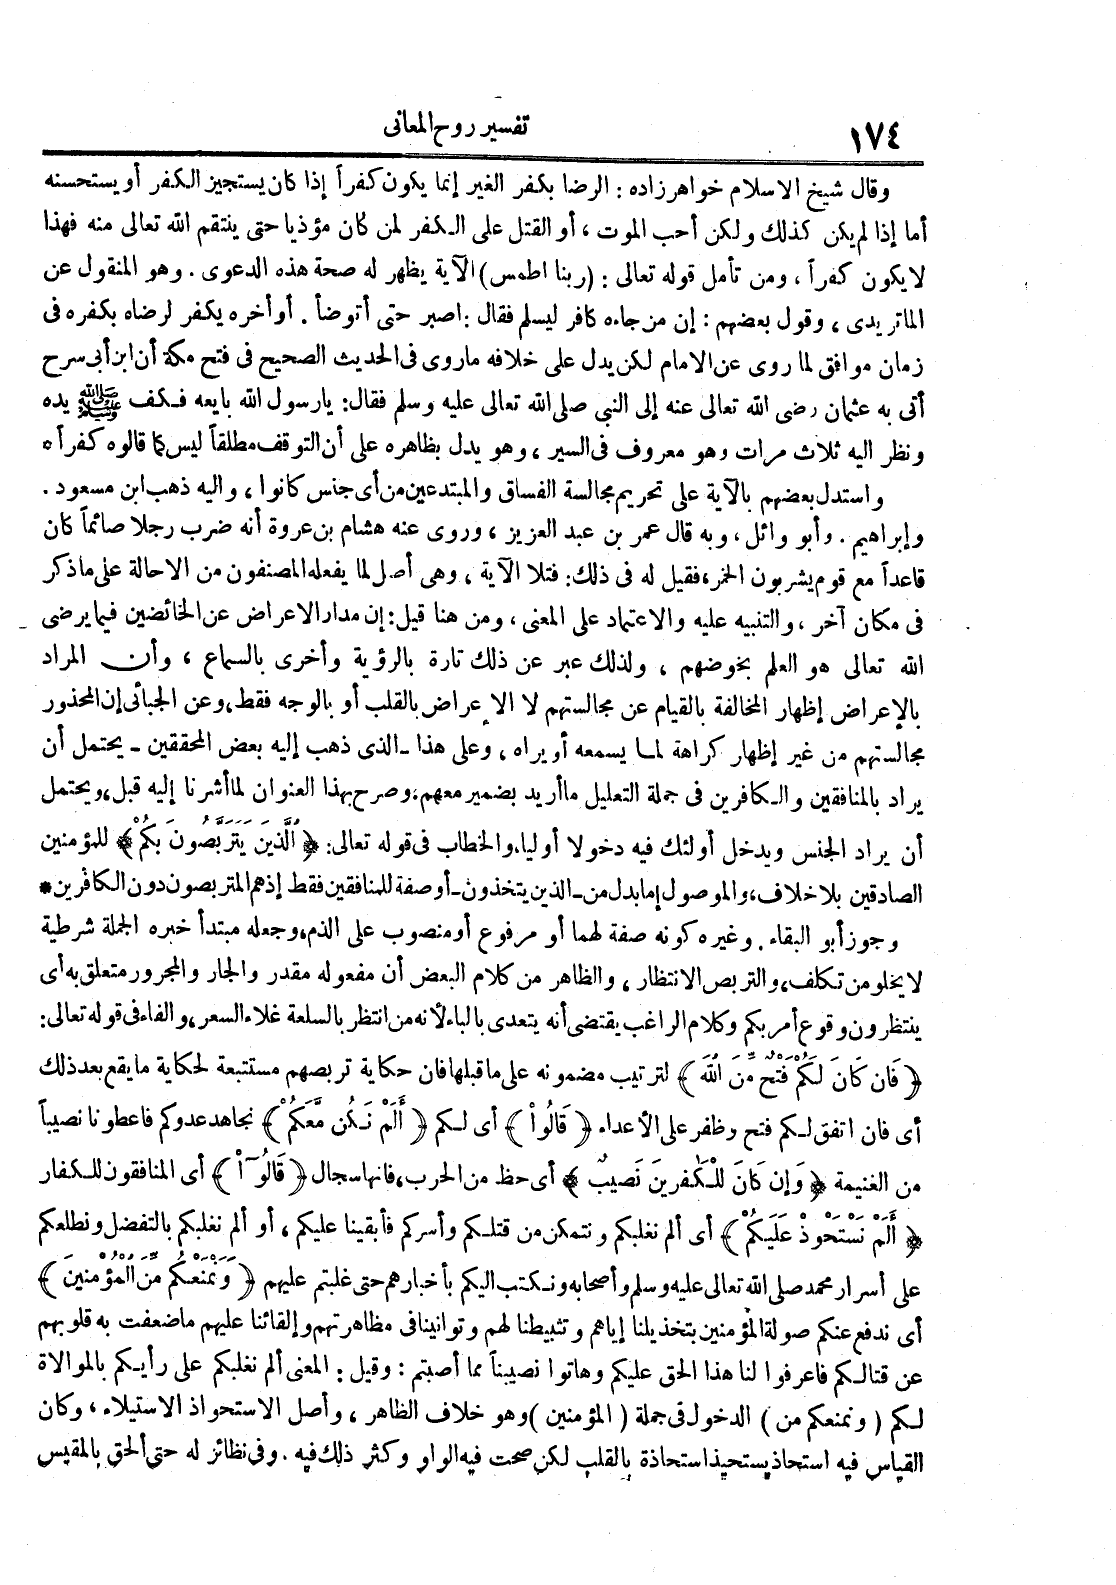 ١٧٤
تفسير روح المعانى
وقال شيخ الاسلام خواهرزاده : الرضا بكفر الغير إنما يكون كفراً إذا كان يستجيز الكفر أو يستحسنه
أما إذا لم يكن كذلك ولكن أحب الموت ، أو القتل على الكفر لمن كان مؤذيا حتى ينتقم الله تعالى منه فهذا
لا يكون كفراً ، ومن تأمل قوله تعالى : (ربنا اطمس) الآية يظهر له صحة هذه الدعوى . وهو المنقول عن
الماتريدى ، وقول بعضهم : إن من جاءه كافر ليسلم فقال : اصبر حتى أتوضأ . أو أخره يكفر لرضاه بكفره فى
زمان موافق لما روى عن الامام لكن يدل على خلافه ماروى فى الحديث الصحيح فى فتح مكة أن ابن أبى سرح
أتى به عثمان رضى الله تعالى عنه إلى النبي صلى الله تعالى عليه وسلم فقال : يارسول الله بايعه فكف ﷺ يده
ونظر اليه ثلاث مرات وهو معروف فى السير ، وهو يدل بظاهره على أن التوقف مطلقاً ليس كما قالوه كفراً ه
واستدل بعضهم بالآية على تحريم مجالسة الفساق والمبتدعين من أى جنس كانوا ، واليه ذهب ابن مسعود .
وإبراهيم . وأبو وائل ، وبه قال عمر بن عبد العزيز ، وروى عنه هشام بن عروة أنه ضرب رجلا صائماً كان
قاعداً مع قوم يشربون الخمر ، فقيل له فى ذلك : فتلا الآية ، وهى أصل لما يفعله المصنفون من الاحالة على ماذكر
فى مكان آخر ، والتنبيه عليه والاعتماد على المعنى ، ومن هنا قيل : إن مدار الاعراض عن الخائضين فيما يرضى
الله تعالى هو العلم بخوضهم ، ولذلك عبر عن ذلك تارة بالرؤية وأخرى بالسماع ، وأن المراد
بالإعراض إظهار المخالفة بالقيام عن مجالستهم لا الإعراض بالقلب أو بالوجه فقط ، وعن الجبائى إن المحذور
مجالستهم من غير إظهار كراهة لما يسمعه أو يراه ، وعلى هذا ـ الذى ذهب إليه بعض المحققين ـ يحتمل أن
يراد بالمنافقين والكافرين فى جملة التعليل ماأريد بضمير معهم ، وصرح بهذا العنوان لما أشرنا إليه قبل ، ويحتمل
أن يراد الجنس ويدخل أولئك فيه دخولا أوليا ، والخطاب فى قوله تعالى : ﴿ ٱلَّذِينَ يَتَرَبَّصُونَ بِكُمْ ﴾ للمؤمنين
الصادقين بلا خلاف ، والموصول إما بدل من ـ الذين يتخذون ـ أو صفة للمنافقين فقط إذهم المتربصون دون الكافرين *
وجوز أبو البقاء . وغيره كونه صفة لهما أو مرفوع أو منصوب على الذم ، وجعله مبتدأ خبره الجملة شرطية
لا يخلو من تكلف ، والتربص الانتظار ، والظاهر من كلام البعض أن مفعوله مقدر والجار والمجرور متعلق به أى
ينتظرون وقوع أمر بكم وكلام الراغب يقتضى أنه يتعدى بالباء لأنه من انتظر بالسلعة غلاء السعر ، والفاء فى قوله تعالى :
﴿ فَان كَانَ لَكُمْ فَتْحٌ مِّنَ ٱللَّهِ ﴾ لترتيب مضمونه على ماقبلها فان حكاية تربصهم مستتبعة لحكاية ما يقع بعد ذلك
أى فان اتفق لكم فتح وظفر على الأعداء ﴿ قَالُواْ ﴾ أى لكم ﴿ أَلَمْ نَكُن مَّعَكُمْ ﴾ نجاهد عدوكم فاعطونا نصيباً
من الغنيمة ﴿ وَإِن كَانَ لِلْكَٰفِرِينَ نَصِيبٌ ﴾ أى حظ من الحرب ، فانها سجال ﴿ قَالُوٓاْ ﴾ أى المنافقون للكفار
﴿ أَلَمْ نَسْتَحْوِذْ عَلَيْكُمْ ﴾ أى ألم نغلبكم ونتمكن من قتلكم وأسركم فأبقينا عليكم ، أو ألم نغلبكم بالتفضل ونطلعكم
على أسرار محمد صلى الله تعالى عليه وسلم وأصحابه ونكتب اليكم بأخبارهم حتى غلبتم عليهم ﴿ وَنَمْنَعْكُم مِّنَ الْمُؤْمِنِينَ ﴾
أى ندفع عنكم صولة المؤمنين بتخذيلنا إياهم وتثبيطنا لهم وتوانينا فى مظاهرتهم وإلقائنا عليهم ماضعفت به قلوبهم
عن قتالكم فاعرفوا لنا هذا الحق عليكم وهاتوا نصيبناً مما أصبتم : وقيل : المعنى ألم نغلبكم على رأيكم بالموالاة
لكم ( ونمنعكم من ) الدخول فى جملة ( المؤمنين ) وهو خلاف الظاهر ، وأصل الاستحواذ الاستيلاء ، وكان
القياس فيه استحاذ يستحيذ استحاذة بالقلب لكن صحت فيه الواو وكثر ذلك فيه . وفى نظائر له حتى ألحق بالمقيس